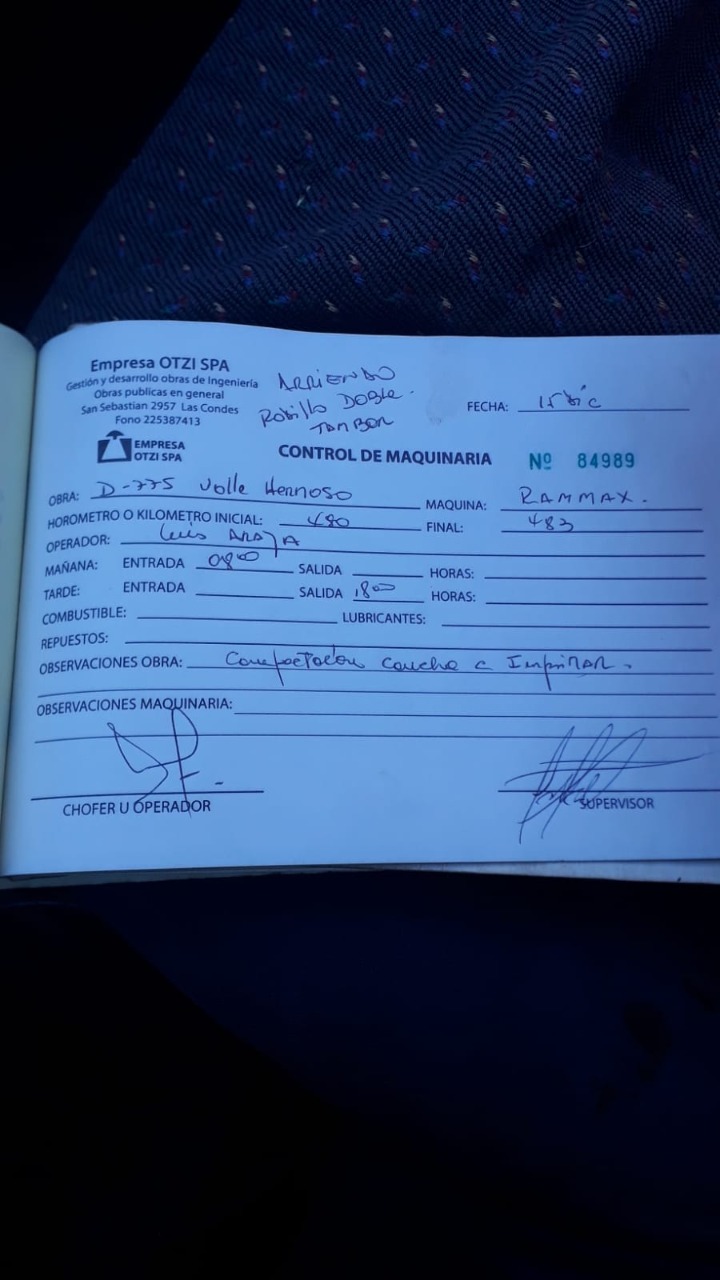 Empresa OTZI SPA
Gestión y desarrollo obras de Ingeniería
Obras publicas en general
San Sebastian 2957 Las Condes
Fono 225387413
EMPRESA
OTZI SPA
ARRIENDO
Rodillo Doble.
TAMBOR
FECHA: 15 Dic
CONTROL DE MAQUINARIA Nº 84989
OBRA: D-775 Valle Hermoso MAQUINA: RAMMAX.
HOROMETRO O KILOMETRO INICIAL: 480 FINAL: 483
OPERADOR: Luis ARAYA
MAÑANA: ENTRADA 0800 SALIDA HORAS:
TARDE: ENTRADA SALIDA 1800 HORAS:
COMBUSTIBLE: LUBRICANTES:
REPUESTOS:
OBSERVACIONES OBRA: Compactación cancha a Imprimar.
OBSERVACIONES MAQUINARIA:
CHOFER U OPERADOR SUPERVISOR